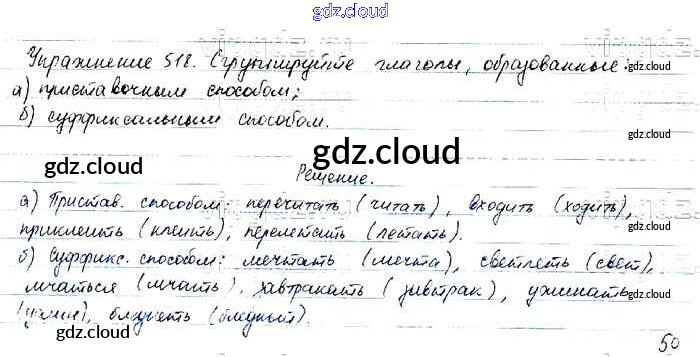 gdz.cloud
Упражнение 518. Сгруппируйте глаголы, образованные:
gdz.cloud
а) приставочным способом;
б) суффиксальным способом.
gdz.cloud
gdz.cloud
gdz.cloud
Решение.
а) Пристав. способом: перечитать (читать), входить (ходить),
gdz.cloud
приклеить (клеить), перелетать (летать).
б) Суффикс. способом: мечтать (мечта), светлеть (свет),
gdz.cloud
мчаться (мчать), завтракать (завтрак), ужинать
gdz.cloud
(ужин), бледнеть (бледный).
gdz.cloud
50